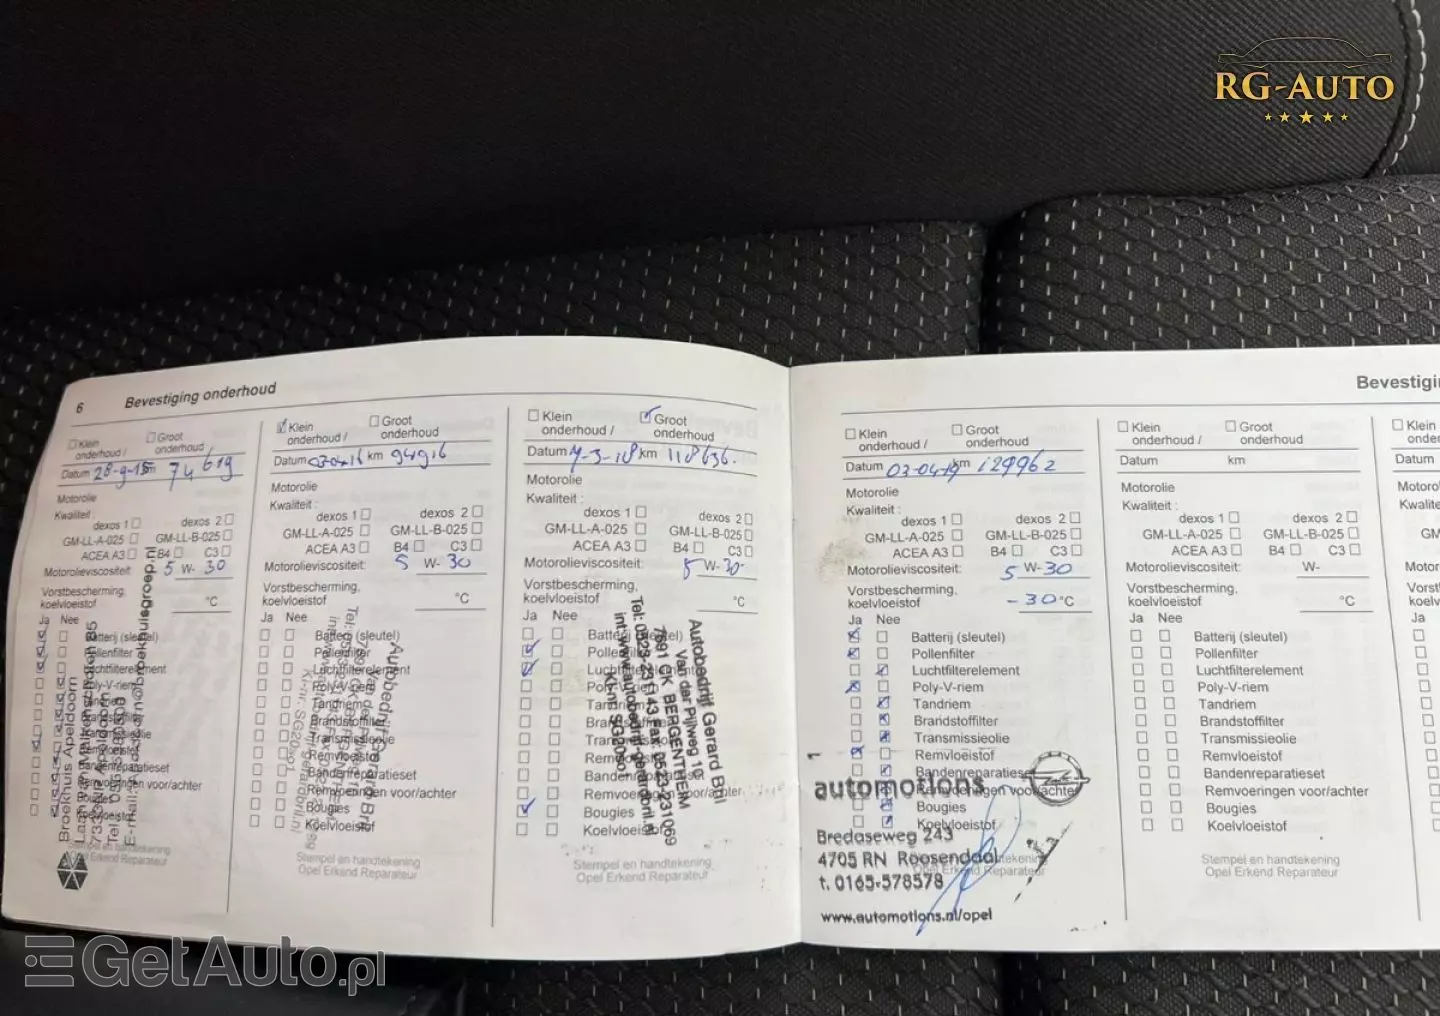 RG-AUTO
6 Bevestiging onderhoud
Klein onderhoud /
Groot onderhoud
Datum 28-9-15 km 74619
Motorolie
Kwaliteit :
dexos 1 dexos 2
GM-LL-A-025 GM-LL-B-025
ACEA A3 B4 C3
Motorolieviscositeit: 5 W- 30
Vorstbescherming,
koelvloeistof °C
Ja Nee
Batterij (sleutel)
Pollenfilter
Luchtfilterelement
Poly-V-riem
Tandriem
Brandstoffilter
Transmissieolie
Remvloeistof
Bandenreparatieset
Remvoeringen voor/achter
Bougies
Koelvloeistof
Broekhuis Apeldoorn
Stempel en handtekening
Opel Erkend Reparateur
Klein onderhoud /
Groot onderhoud
Datum 03-04-16 km 94916
Motorolie
Kwaliteit :
dexos 1 dexos 2
GM-LL-A-025 GM-LL-B-025
ACEA A3 B4 C3
Motorolieviscositeit: 5 W- 30
Vorstbescherming,
koelvloeistof °C
Ja Nee
Batterij (sleutel)
Pollenfilter
Luchtfilterelement
Poly-V-riem
Tandriem
Brandstoffilter
Transmissieolie
Remvloeistof
Bandenreparatieset
Remvoeringen voor/achter
Bougies
Koelvloeistof
Stempel en handtekening
Opel Erkend Reparateur
Klein onderhoud /
Groot onderhoud
Datum 7-3-18 km 118636.
Motorolie
Kwaliteit :
dexos 1 dexos 2
GM-LL-A-025 GM-LL-B-025
ACEA A3 B4 C3
Motorolieviscositeit: 5 W- 30
Vorstbescherming,
koelvloeistof °C
Ja Nee
Batterij (sleutel)
Pollenfilter
Luchtfilterelement
Poly-V-riem
Tandriem
Brandstoffilter
Transmissieolie
Remvloeistof
Bandenreparatieset
Remvoeringen voor/achter
Bougies
Koelvloeistof
Autobedrijf Gerard Bril
Van der Pijlweg 10
7691 CK BERGENTHEIM
Tel: 0523-231143 Fax: 0523-231069
Stempel en handtekening
Opel Erkend Reparateur
Bevestigin
Klein onderhoud /
Groot onderhoud
Datum 03-04-19 km 129962
Motorolie
Kwaliteit :
dexos 1 dexos 2
GM-LL-A-025 GM-LL-B-025
ACEA A3 B4 C3
Motorolieviscositeit: 5 W-30
Vorstbescherming,
koelvloeistof -30 °C
Ja Nee
Batterij (sleutel)
Pollenfilter
Luchtfilterelement
Poly-V-riem
Tandriem
Brandstoffilter
Transmissieolie
Remvloeistof
Bandenreparatieset
Remvoeringen voor/achter
Bougies
Koelvloeistof
1
automotions
Bredaseweg 243
4705 RN Roosendaal
t. 0165-578578
www.automotions.nl/opel
Klein onderhoud /
Groot onderhoud
Datum km
Motorolie
Kwaliteit :
dexos 1 dexos 2
GM-LL-A-025 GM-LL-B-025
ACEA A3 B4 C3
Motorolieviscositeit: W-
Vorstbescherming,
koelvloeistof °C
Ja Nee
Batterij (sleutel)
Pollenfilter
Luchtfilterelement
Poly-V-riem
Tandriem
Brandstoffilter
Transmissieolie
Remvloeistof
Bandenreparatieset
Remvoeringen voor/achter
Bougies
Koelvloeistof
Stempel en handtekening
Opel Erkend Reparateur
Klein
onder
Datum
Motorolie
Kwaliteit :
GM
Motor
Vorst
koelvl
Ja
GetAuto.pl